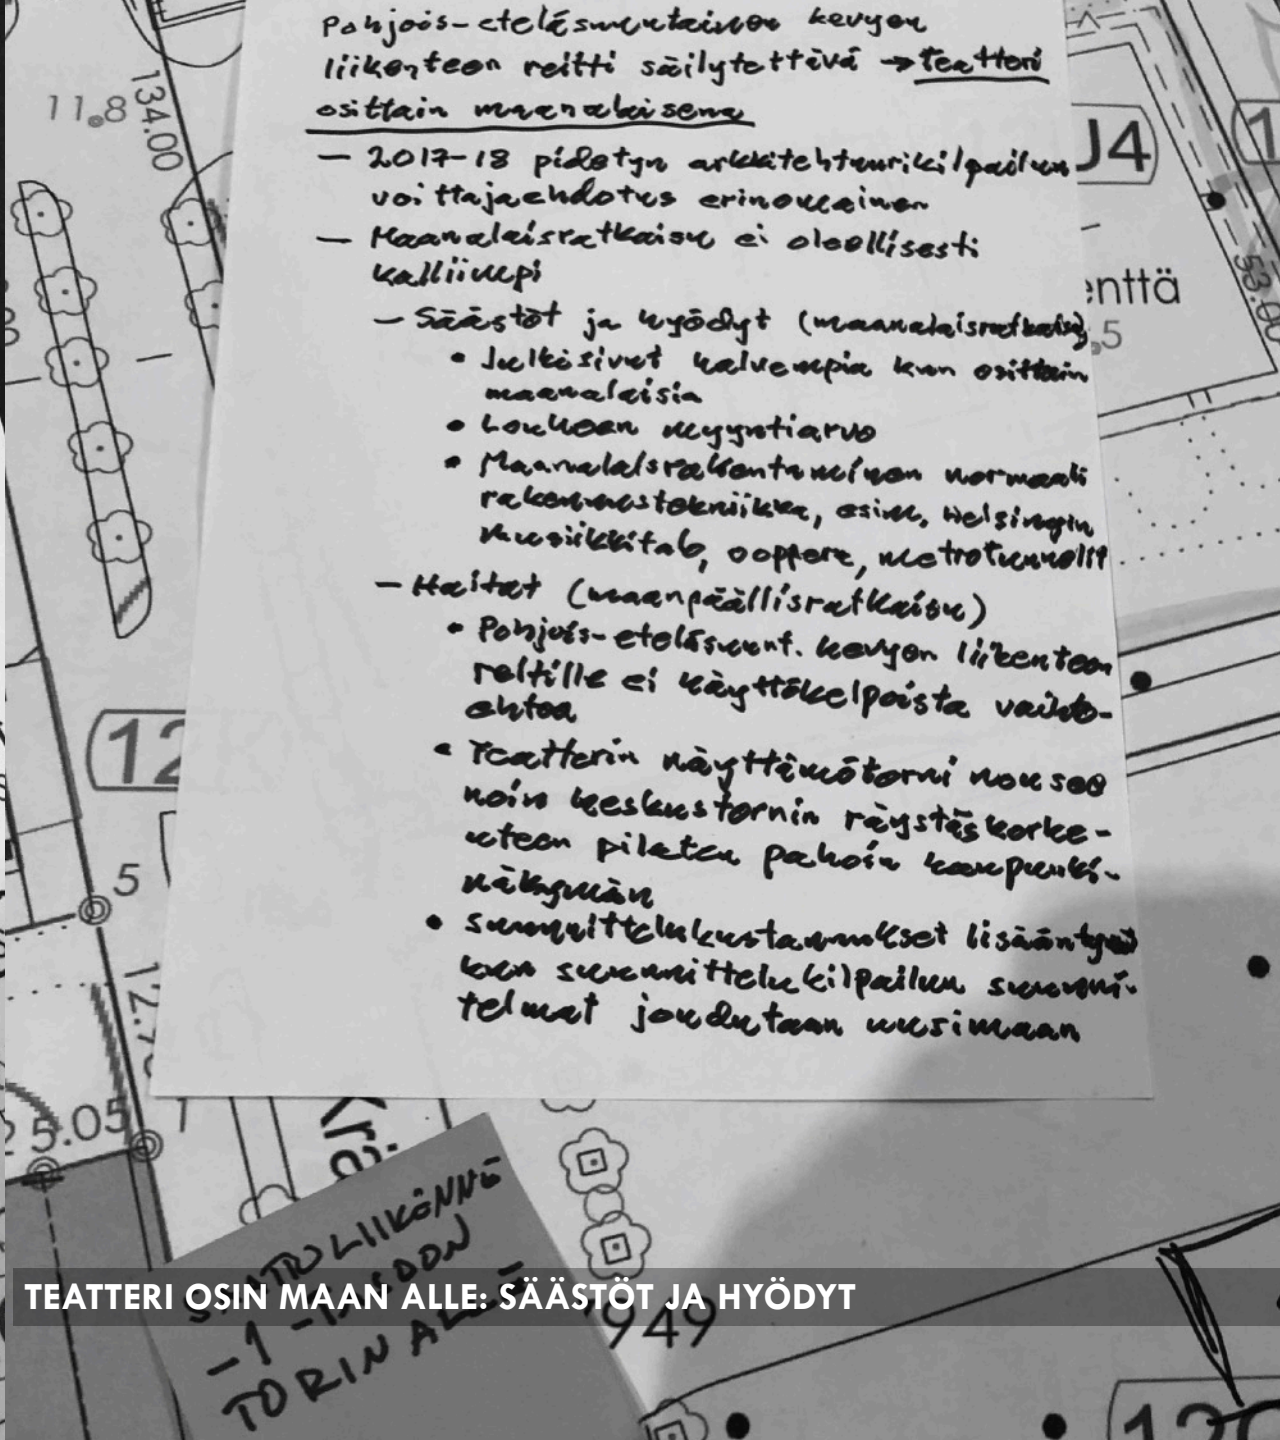 Pohjois-eteläsuuntainen kevyen
liikenteen reitti säilytettävä → teatteri
osittain maanalaisena
— 2017-18 pidetyn arkkitehtuurikilpailun
voittajaehdotus erinomainen
— Maanalaisratkaisu ei oleellisesti
kalliimpi
— Säästöt ja hyödyt (maanalaisratkaisu)
• Julkisivut halvempia kun osittain
maanalaisia
• Louheen myyntiarvo
• Maanalaisrakentaminen normaali
rakennustekniikka, esim. Helsingin
musiikkitalo, ooppera, metrotunnelit
— Haitat (maanpäällisratkaisu)
• Pohjois-eteläsuunt. kevyen liikenteen
reitille ei käyttökelpoista vaihto-
ehtoa
• Teatterin näyttämötorni nousee
noin keskustornin räystäskorke-
uteen pilaten pahoin kaupunki-
näkymän
• Suunnittelukustannukset lisääntyvät
kun suunnittelukilpailun suunni-
telmat joudutaan uusimaan
11.8
134.00
J4
1
enttä
.5
53.00
12
5
12.7
5.05
1
-1 -TASOON
TORIN ALLE
TEATTERI OSIN MAAN ALLE: SÄÄSTÖT JA HYÖDYT
949
120